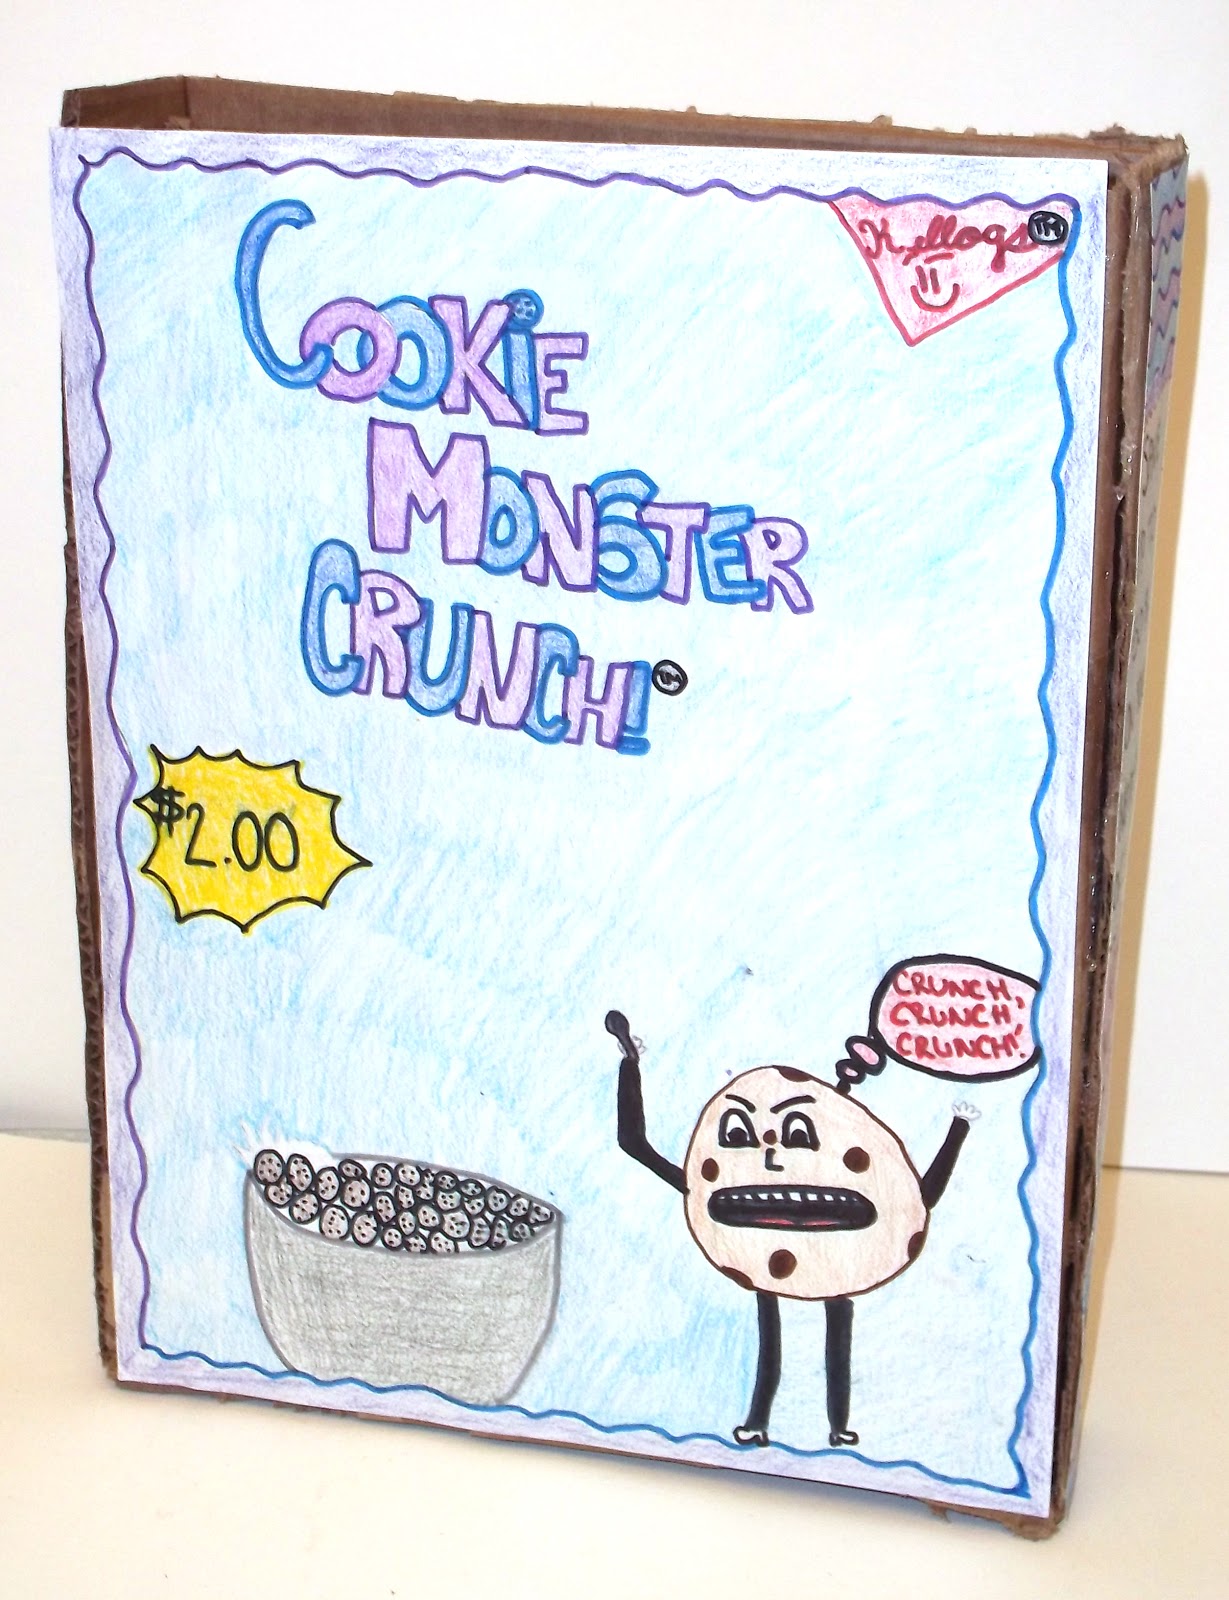 Kellogs TM
COOKiE
MONSTER
CRUNCH! TM
$2.00
CRUNCH,
CRUNCH,
CRUNCH!